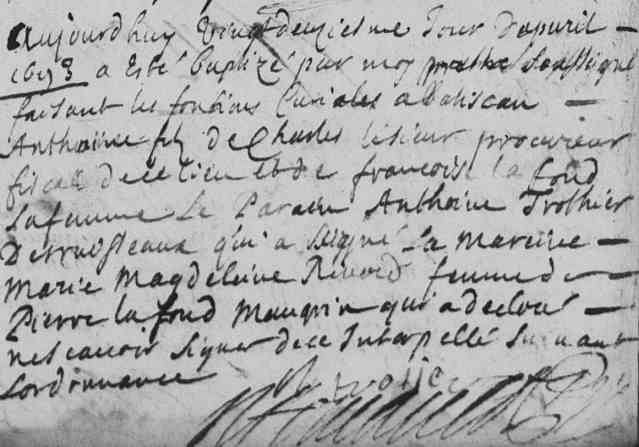 Aujourdhuy Vingt deuziesme Jour Dapuril
1693 a Esté baptizé par moy prestre Soussigné
faisant les fonctions Curiales a Batiscan
Anthoine fils de Charles lesieur procureur
fiscal de ce lieu et de francoise la fond
sa femme Le Parain Anthoine Trottier
Desruisseaux qui a signé La mareine
Marie Magdeleine Rivard femme de
Pierre la fond Maugrin qui a declaré
ne scavoir signer de ce Interpellé Suivant
Lordonnance